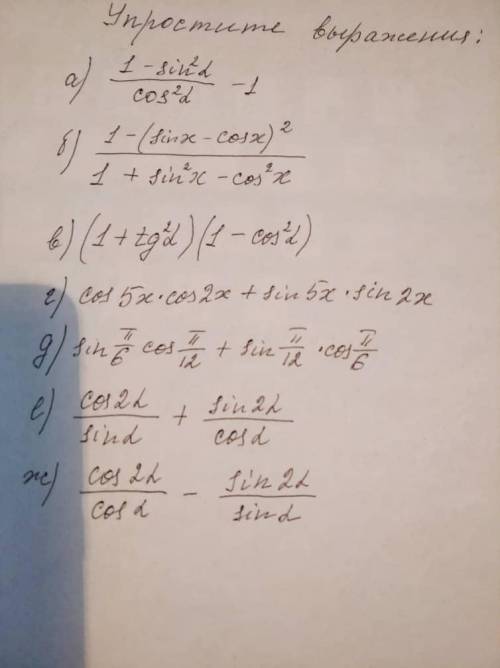 Упростите выражения:
а) (1 - sin²α)/(cos²α) - 1
б) (1 - (sinx - cosx)²)/(1 + sin²x - cos²x)
в) (1 + tg²α)(1 - cos²α)
г) cos5x · cos2x + sin5x · sin2x
д) sin π/6 cos π/12 + sin π/12 · cos π/6
е) cos2α/sinα + sin2α/cosα
ж) cos2α/cosα - sin2α/sinα